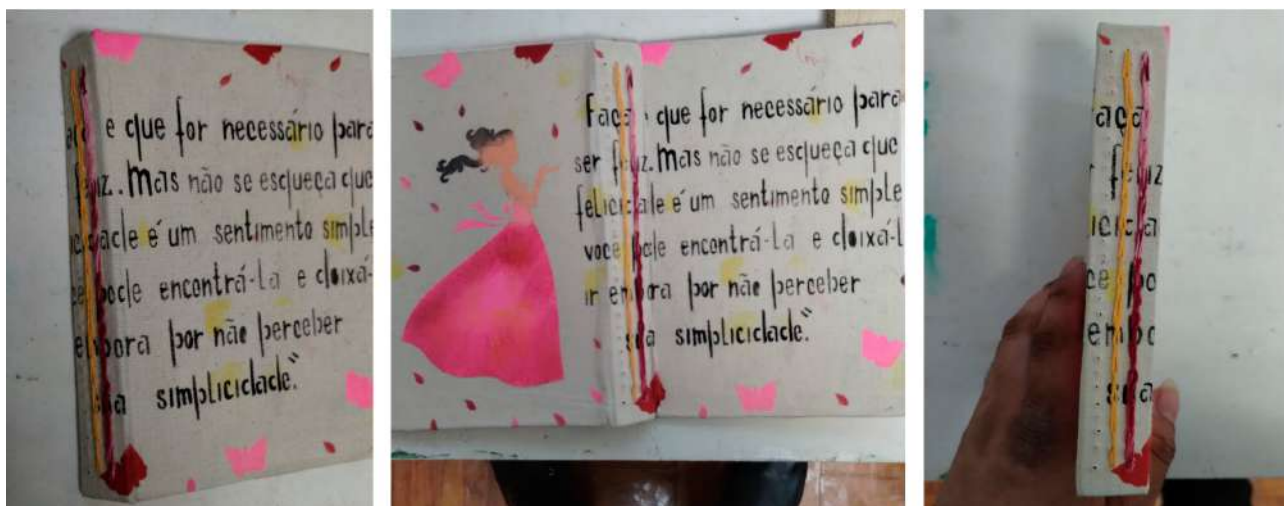 e que for necessário para
feliz. Mas não se esqueça que
dade é um sentimento simple
pode encontrá-la e deixá-
embora por não perceber
sua simplicidade."
Faça o que for necessário para
ser feliz. Mas não se esqueça que
felicidade é um sentimento simple
voce pode encontrá-la e deixá-l
ir embora por não perceber
sua simplicidade."
aça
r feliz
licida
ce po
embo
sua